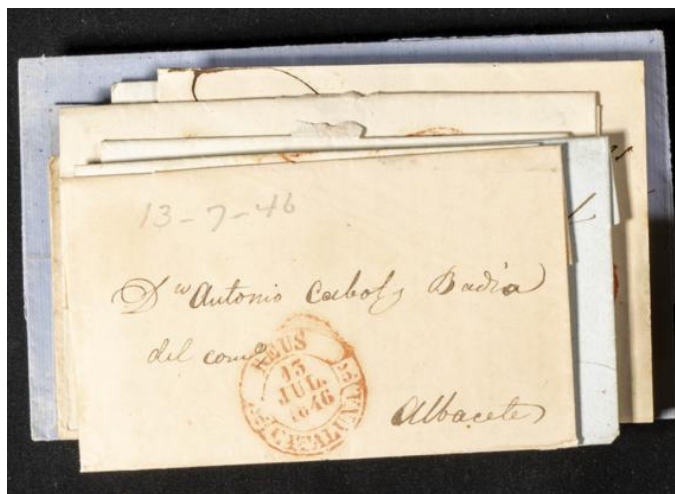 13-7-46
Dn Antonio Cabot y Badia
del comº
REUS
13
JUL.
1846
CATALUÑA
Albacete